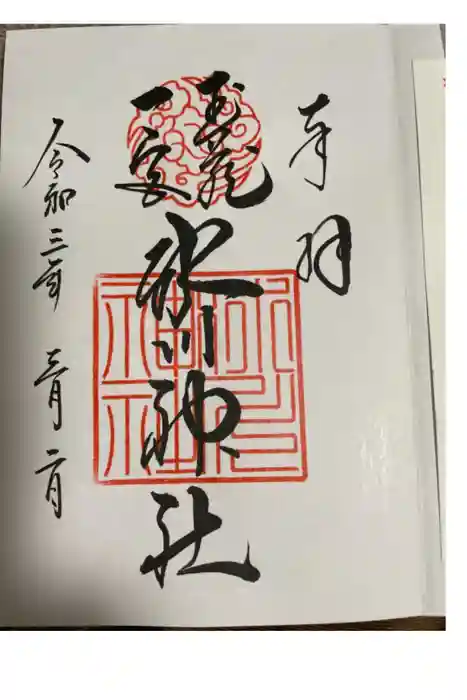 奉拝
武蔵
一宮
氷川神社
氷川
神社
令和三年 三月 二日